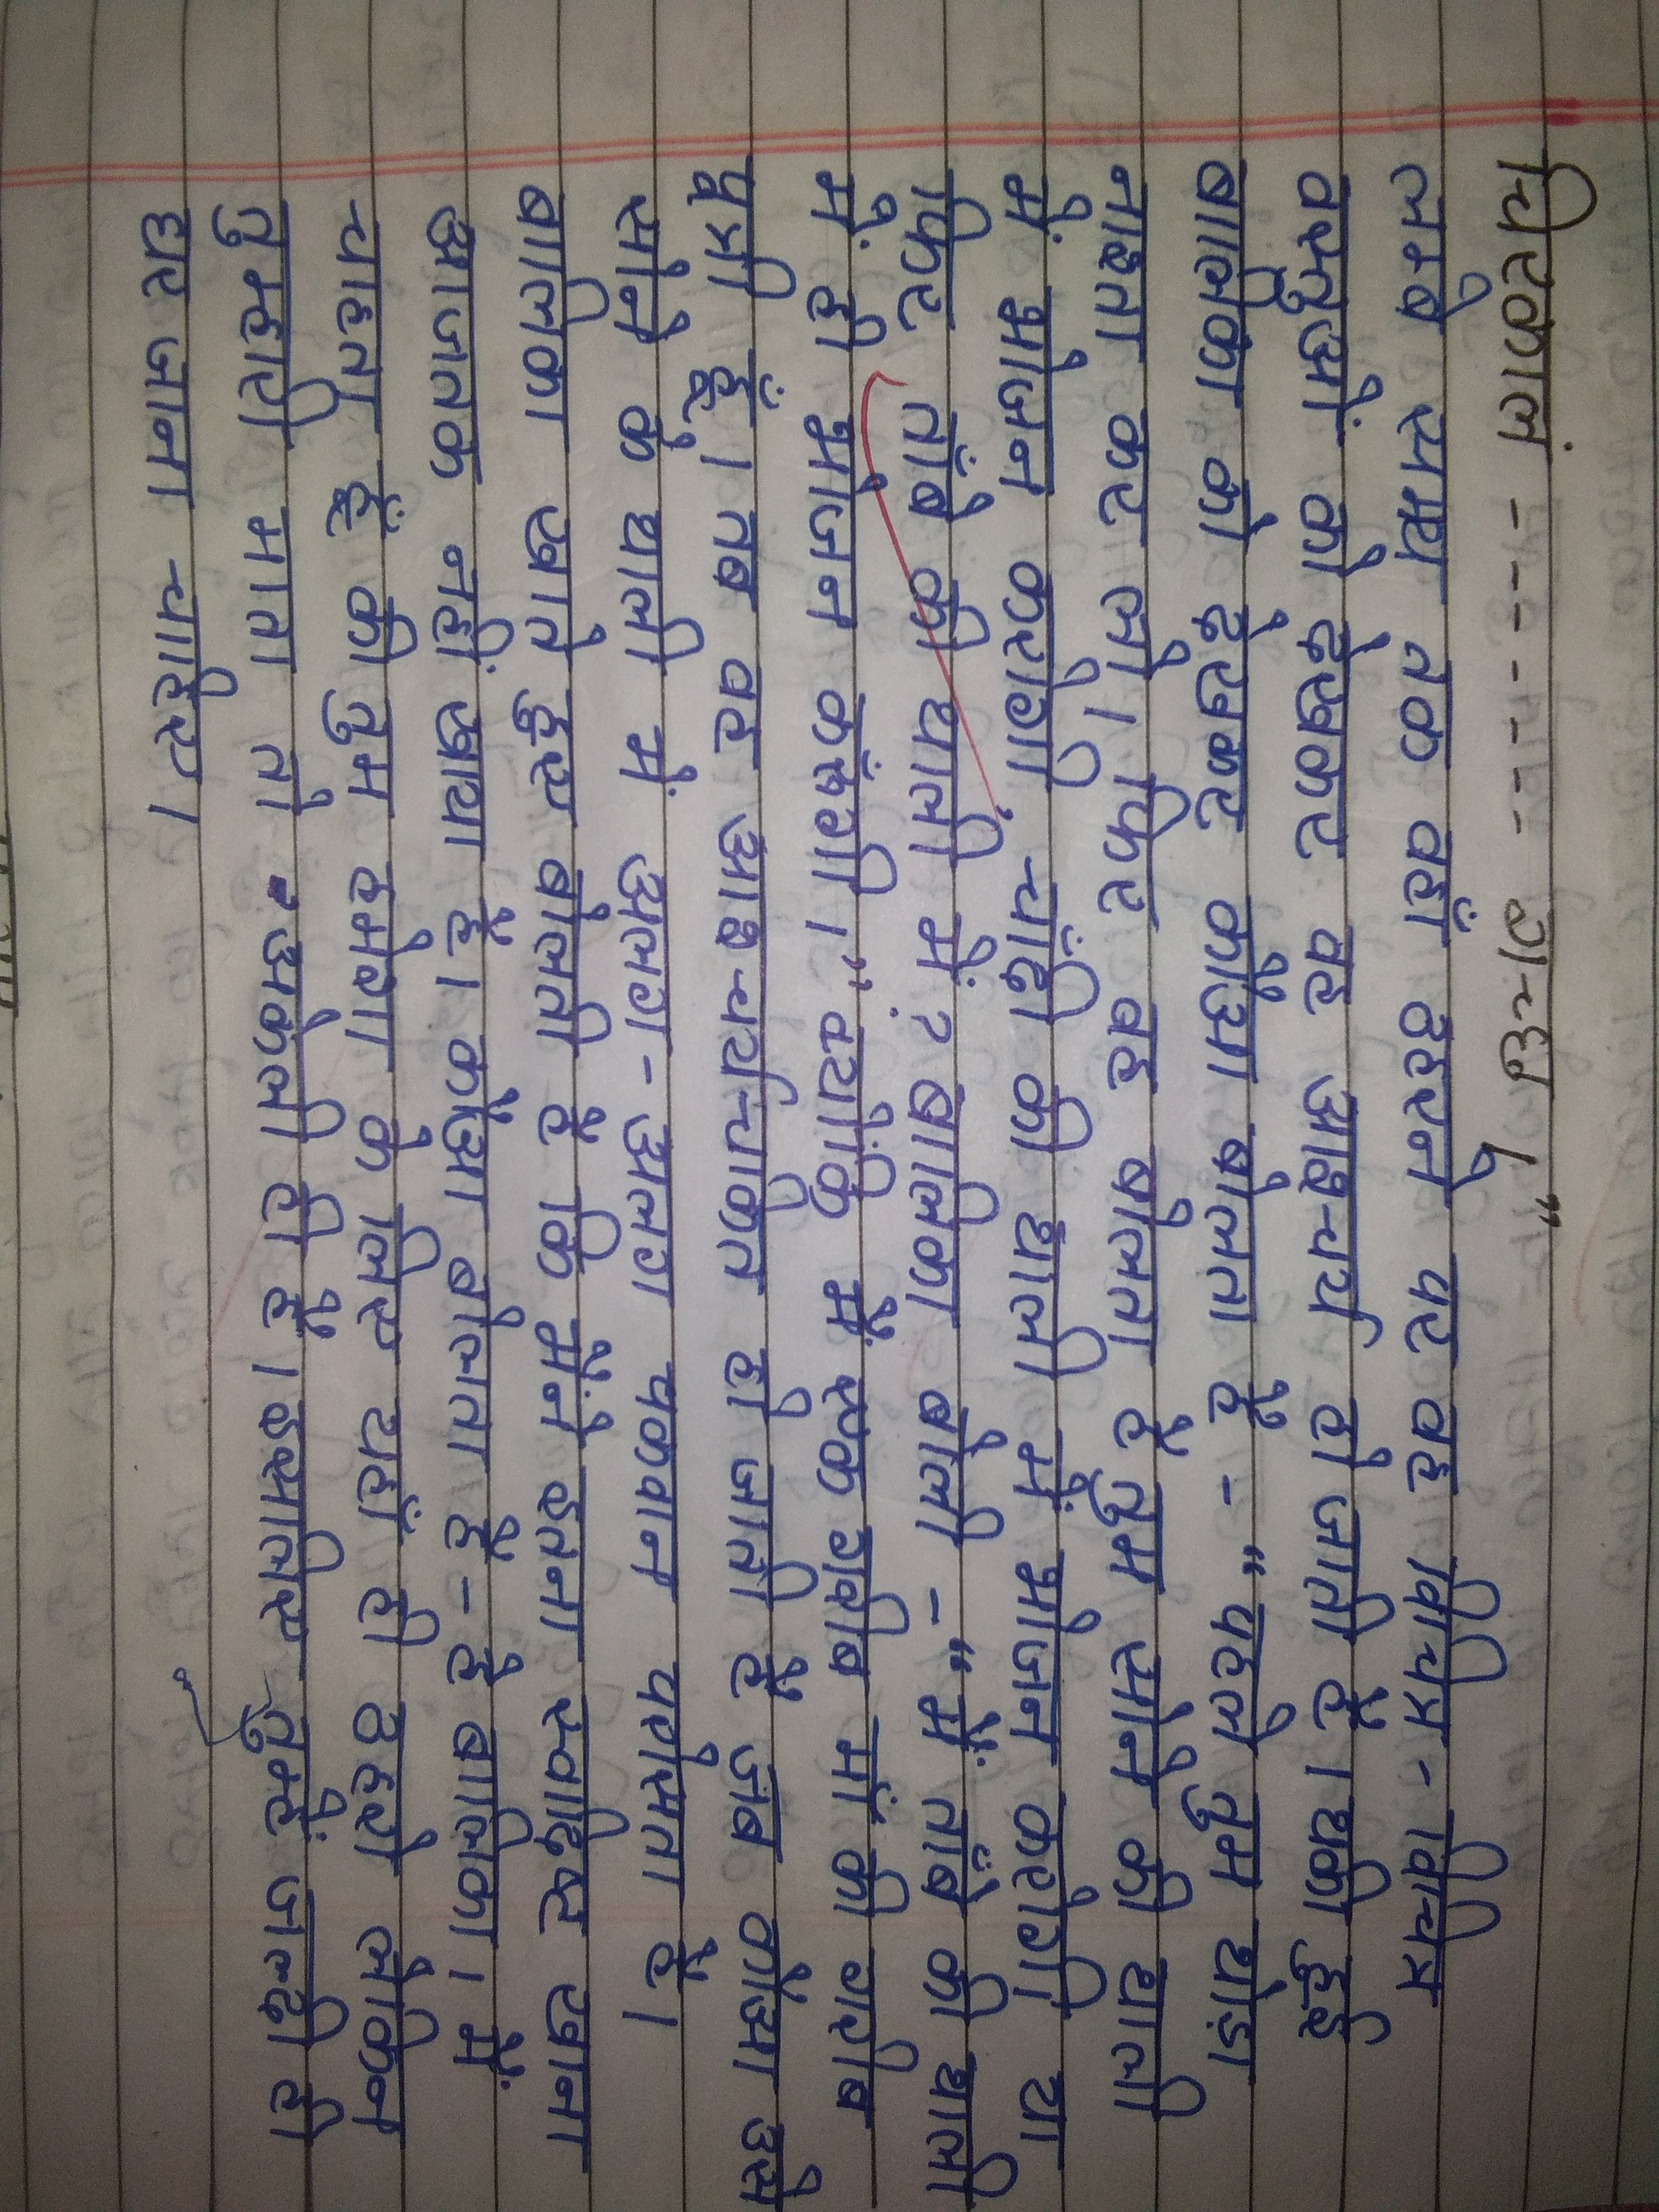 चिरकालं - - - - - - - गच्छ।”
लम्बे समय तक वहाँ ठहरने पर वह विचित्र - विचित्र
वस्तुओं को देखकर वह आश्चर्य हो जाती है। थकी हुई
बालिका को देखकर कौआ बोलता है - “पहले तुम थोड़ा
नाश्ता कर लो। फिर वह बोलता है तुम सोने की थाली
में भोजन करोगी, चाँदी की थाली में भोजन करोगी या
फिर ताँबे की थाली में? बालिका बोली - “मैं ताँबे की थाली
में ही भोजन करुंगी।” क्योंकि मैं एक गरीब माँ की गरीब
पुत्री हूँ। तब वह आश्चर्यचकित हो जाती है जब कौआ उसे
सोने के थाली में अलग - अलग पकवान परोसता है।
बालिका खाते हुए बोलती है कि मैंने इतना स्वादिष्ट खाना
आजतक नहीं खाया है। कौआ बोलता है - हे बालिका। मैं
चाहता हूँ की तुम हमेशा के लिए यहाँ ही ठहरो लेकिन
तुम्हारी माता तो अकेली ही है। इसलिए तुम्हें जल्दी ही
घर जाना चाहिए।